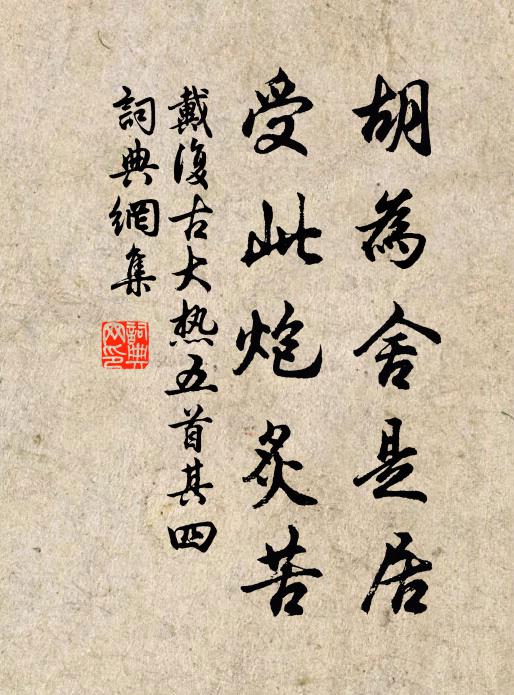 胡為舍是居
受此炮炙苦
戴復古大热五首其四
詞典網集
詞典网印